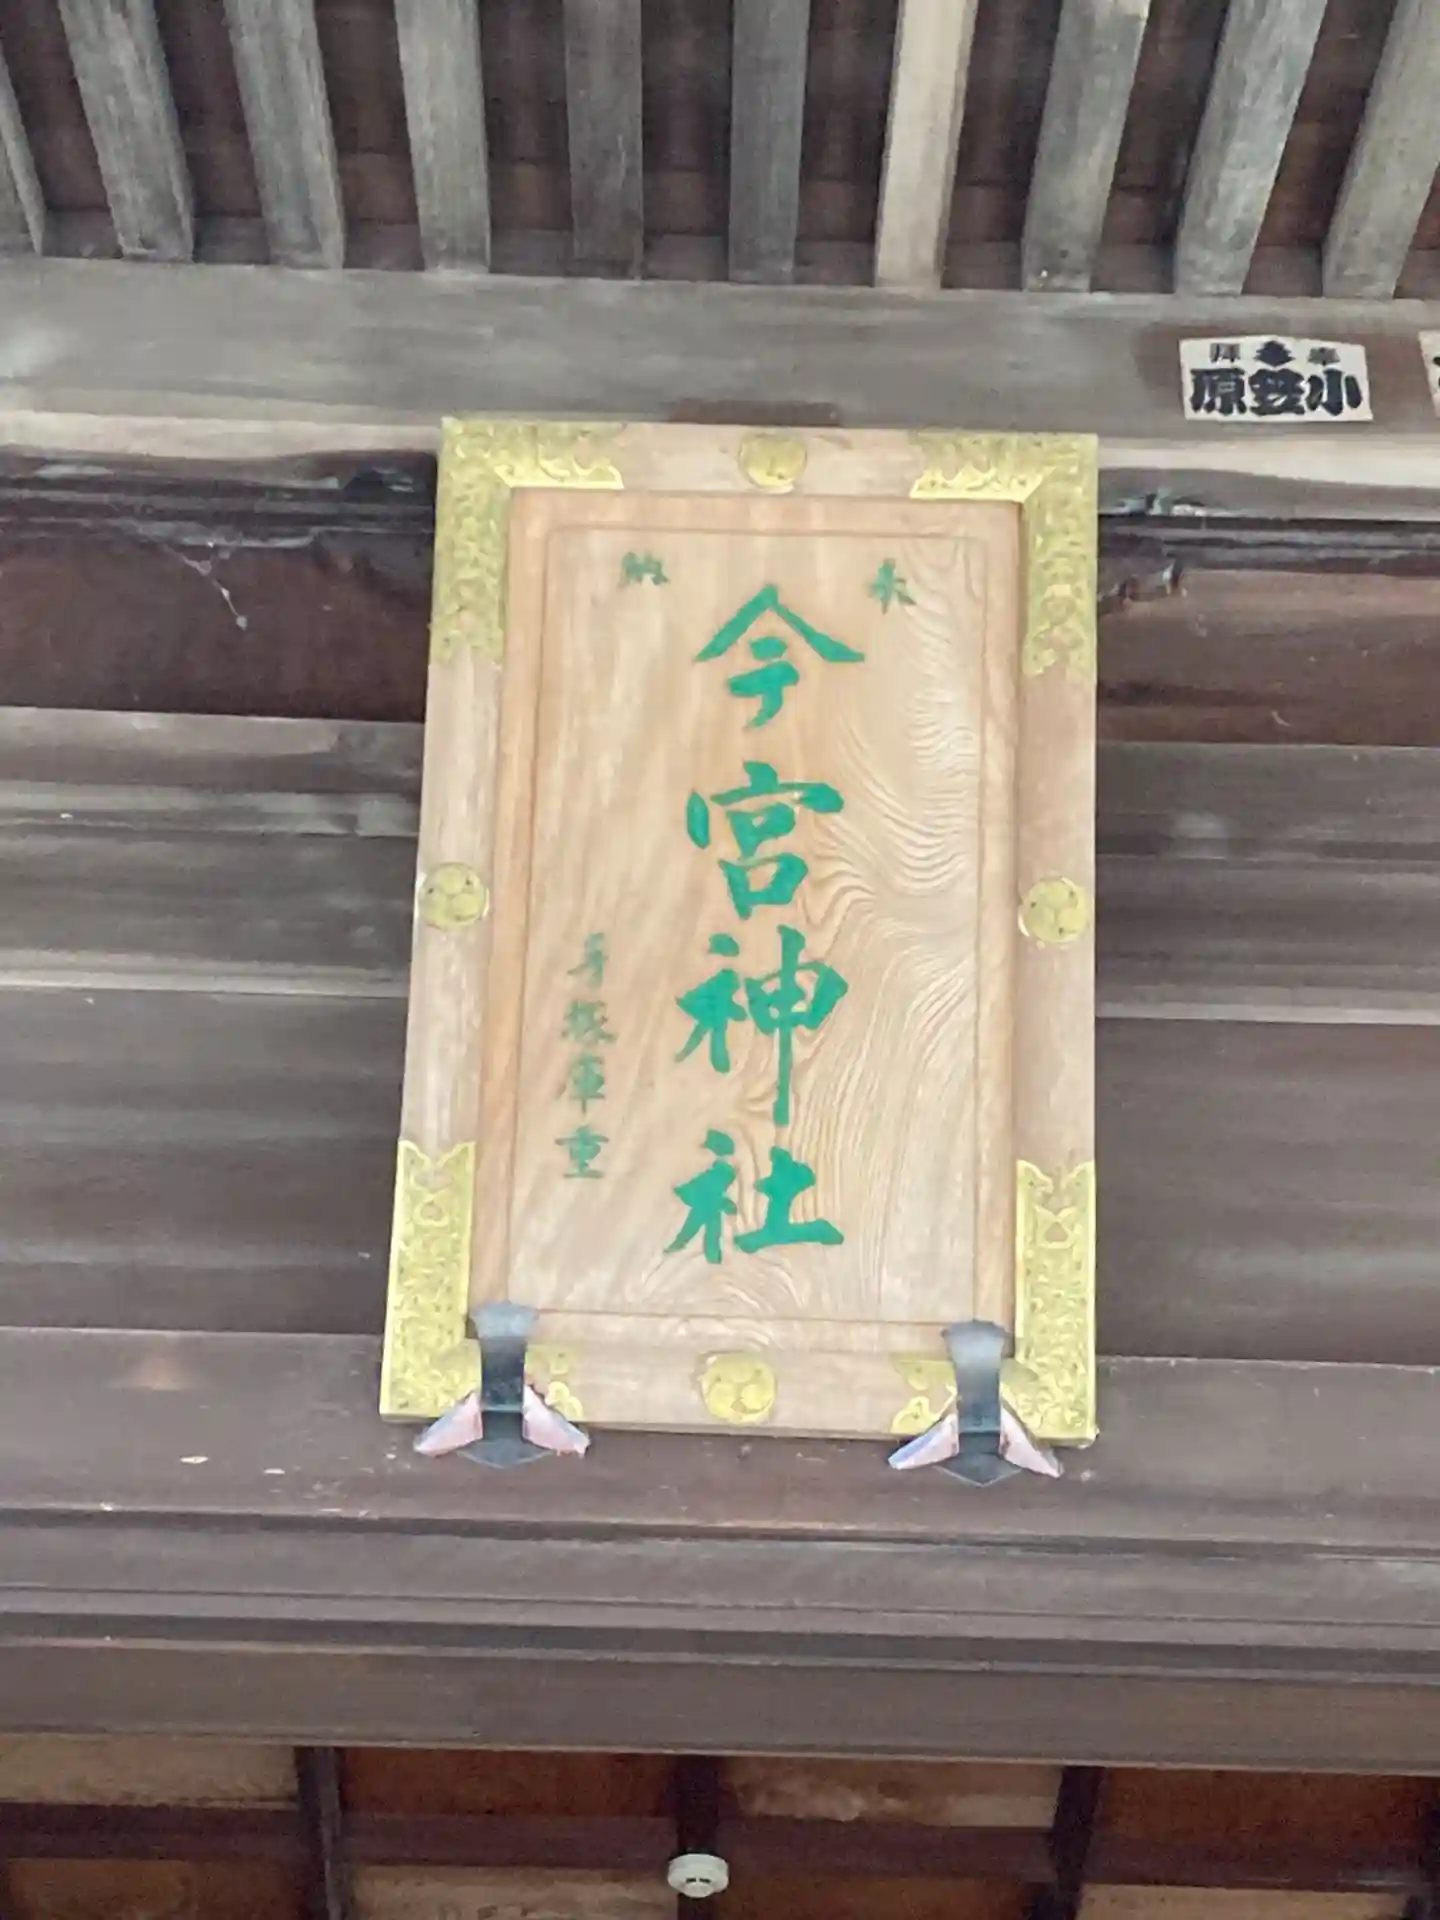 奉納
今宮神社
手塚庫重
奉拝
小笠原